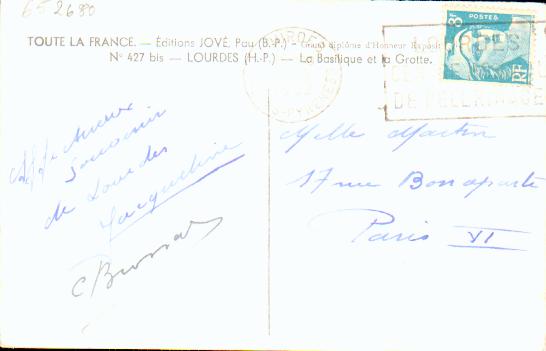 652680
TOUTE LA FRANCE. — Éditions JOVÉ, Pau (B.-P.) - Grand diplôme d'Honneur Exposit
N° 427 bis — LOURDES (H.-P.) — La Basilique et la Grotte.
8F POSTES
RF
LOURDES
DE PELERINAGE
Affectueux
souvenir
de Lourdes
Jacqueline
Melle Martin
17 rue Bonaparte
Paris VI